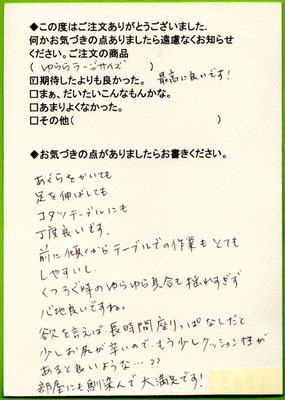 ◆この度はご注文ありがとうございました.
何かお気づきの点ありましたら遠慮なくお知らせ
ください。ご注文の商品
(ゆらら ラージサイズ )
☑期待したよりも良かった。 最高に良いです!
□まぁ、だいたいこんなもんかな。
□あまりよくなかった。
□その他( )
◆お気づきの点がありましたらお書きください。
あぐらをかいても
足を伸ばしても
コタツテーブルにも
丁度良いです.
前に傾くからテーブルでの作業も とても
しやすいし.
くつろぐ時のゆらゆら具合も揺れすぎず
心地良いですね。
欲を言えば長時間座りっぱなしだと
少しお尻が辛いので、もう少しクッション性が
あると良いような…??
部屋にも馴染んで大満足です!